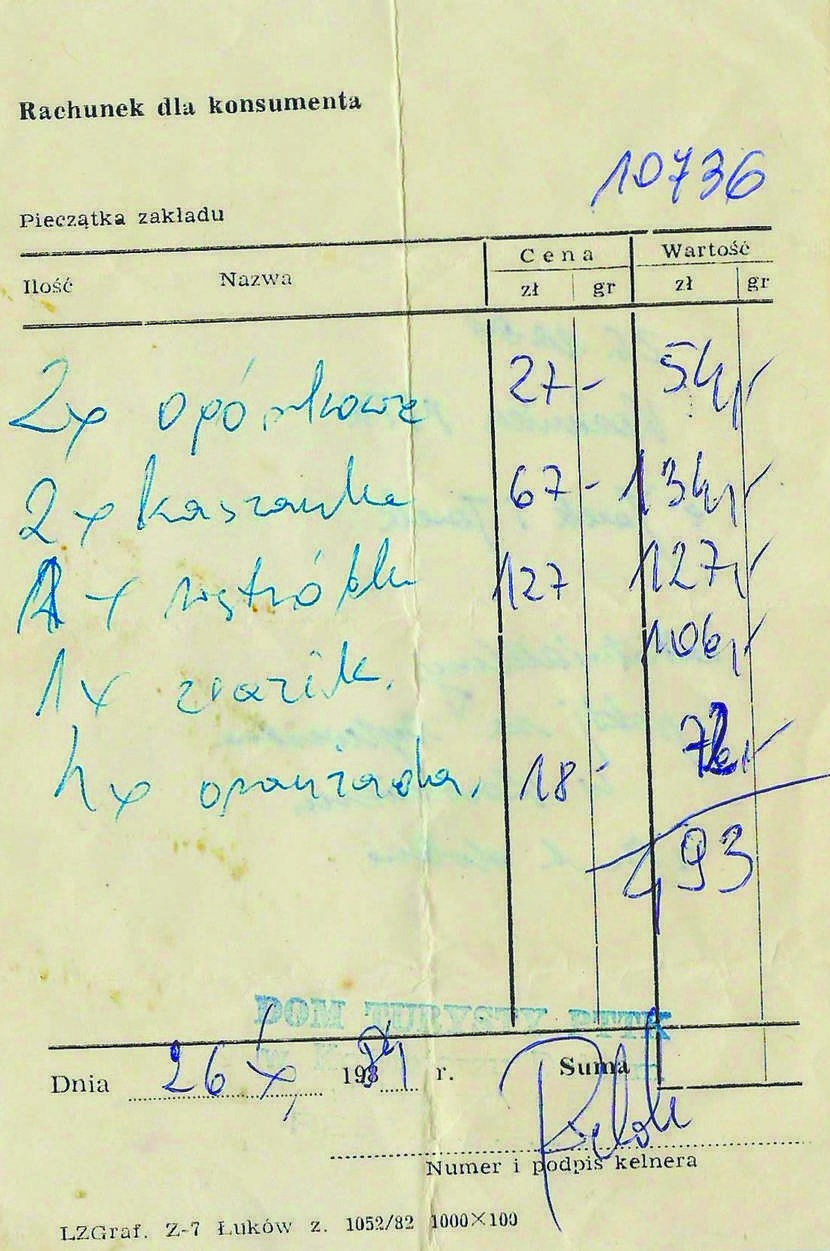 Rachunek dla konsumenta
10736
Pieczątka zakładu
Ilość Nazwa Cena Wartość
zł gr zł gr
2x 27- 54,-
2x kaszanka 67- 134,-
1x wątróbka 127 127,-
1x 106,-
4x oranżada, 18- 72,-
493
DOM TURYSTY PTTK
Dnia 26 X, 1984 r. Suma
Numer i podpis kelnera
LZGraf. Z-7 Łuków z. 1052/82 1000×100